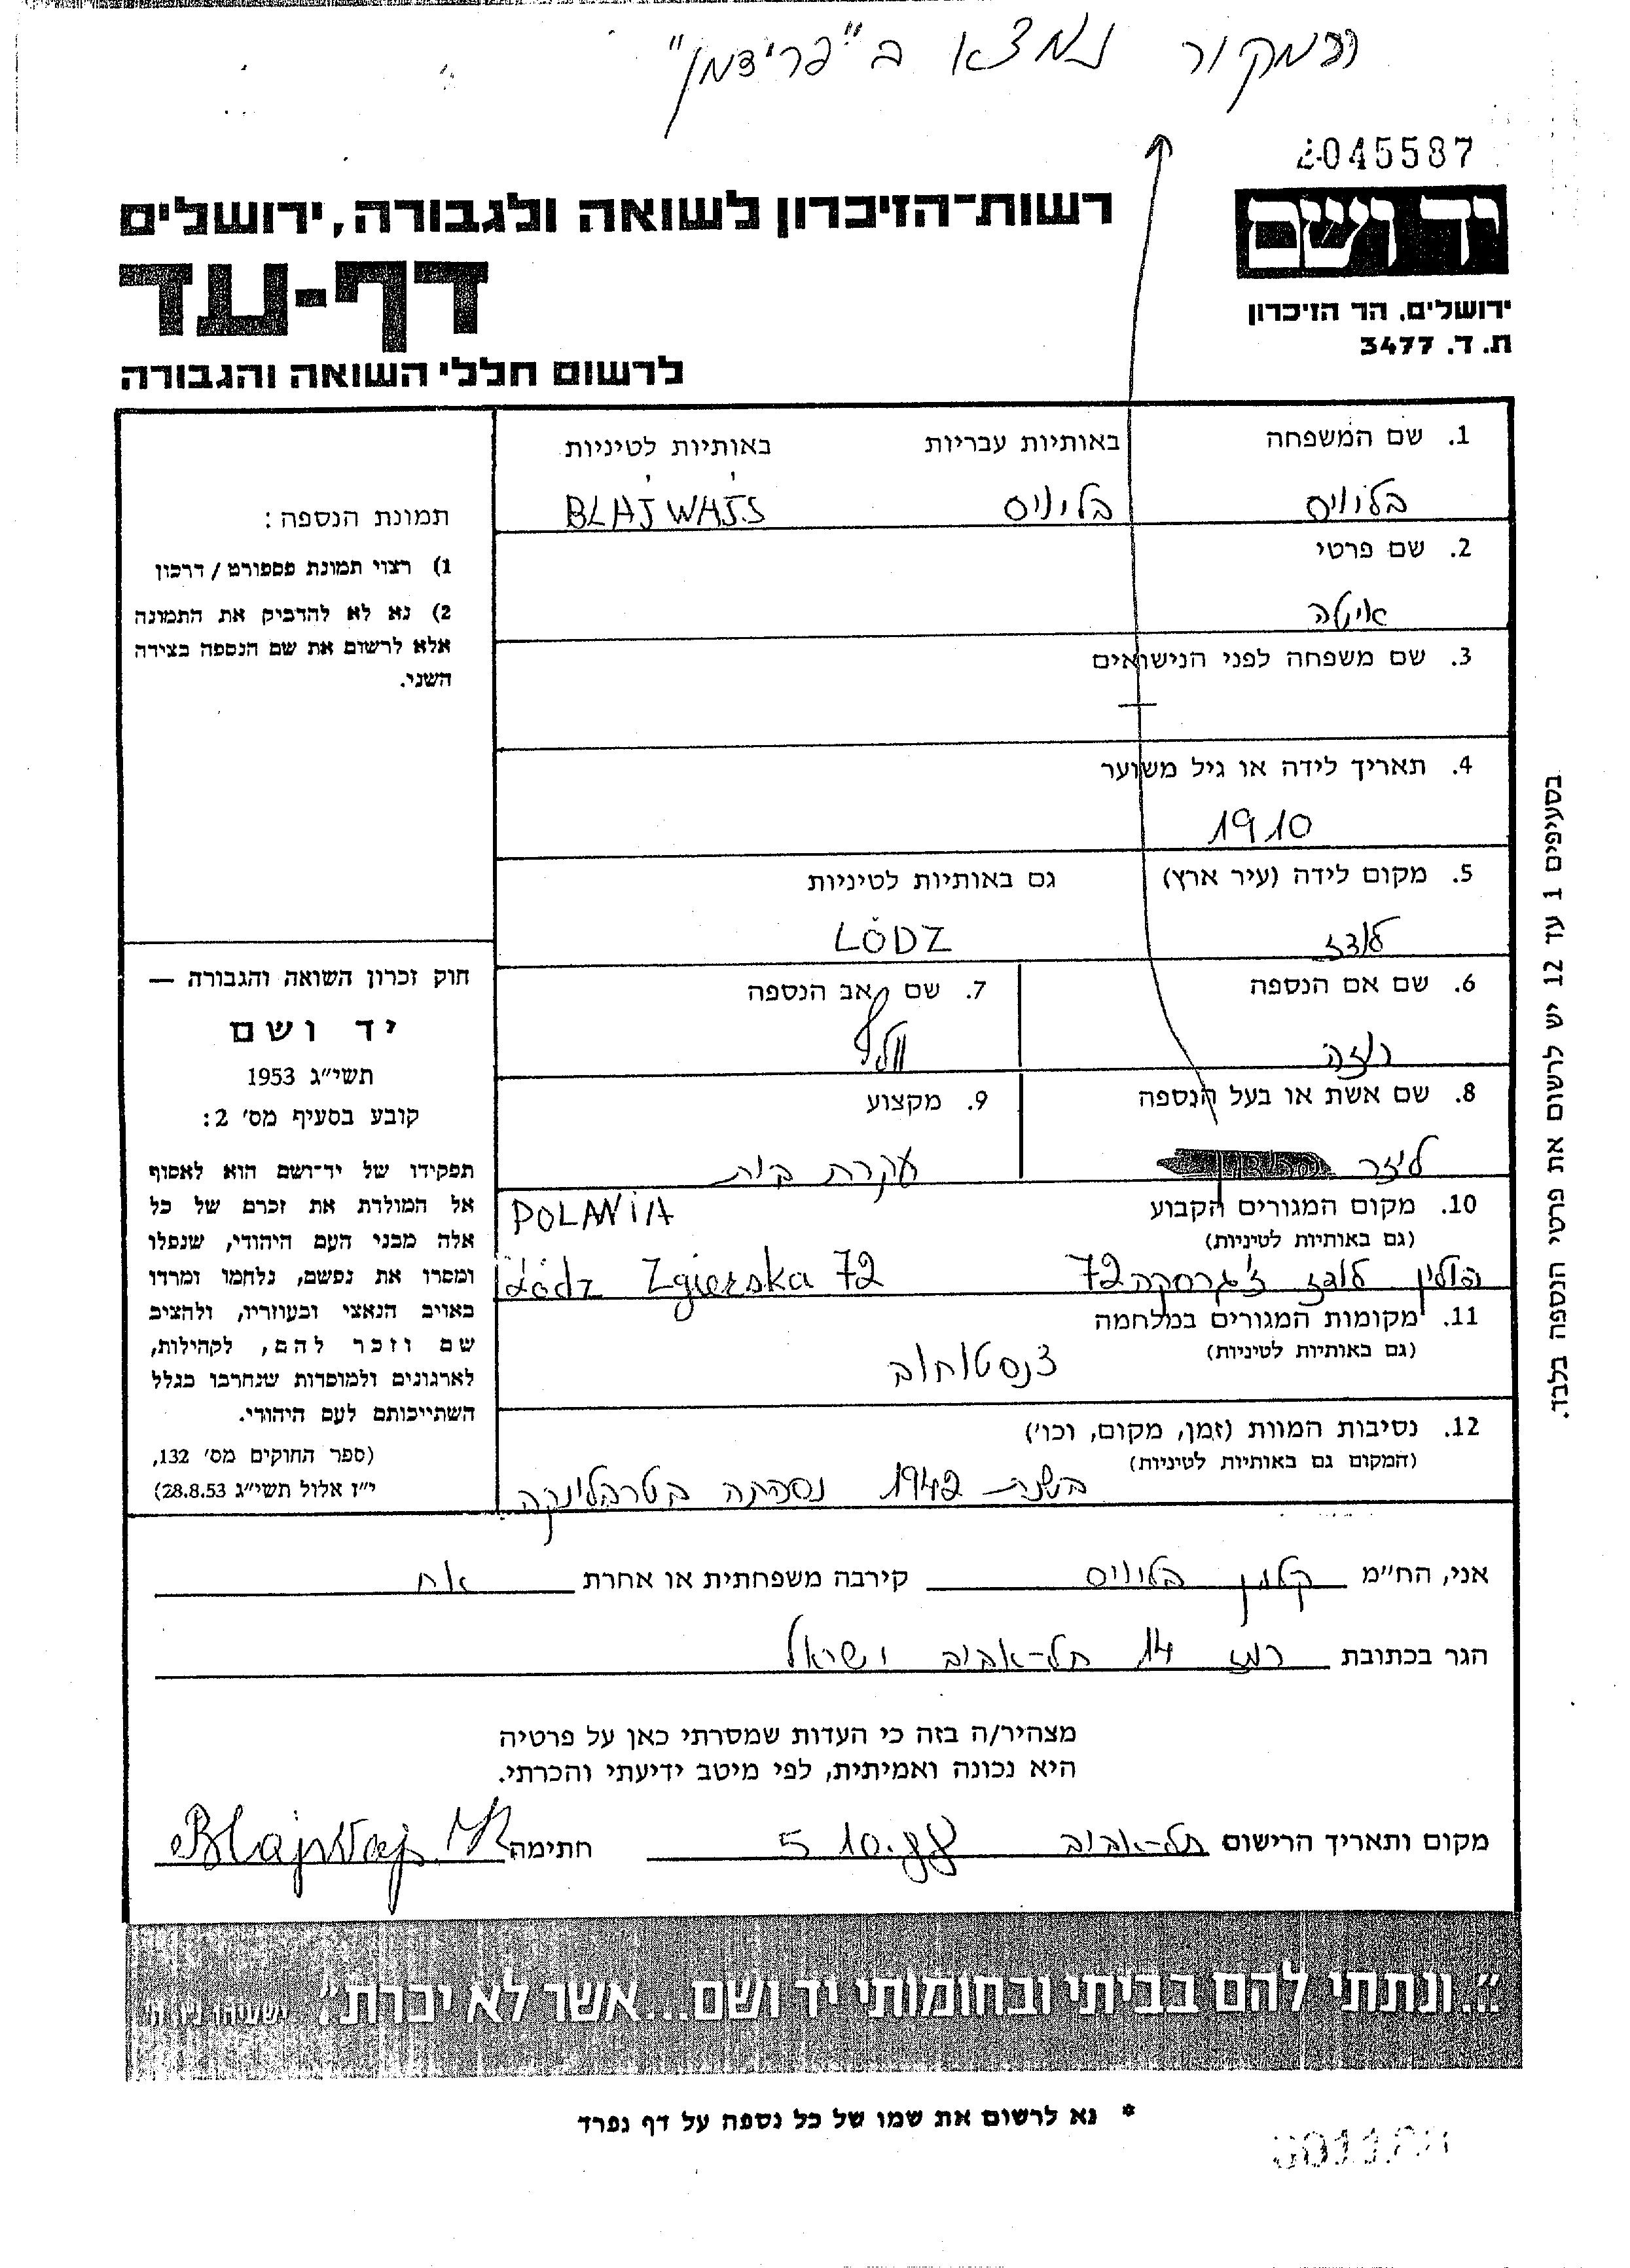 המקור נמצא ב"פרידמן"
2045587
יד ושם
רשות־הזיכרון לשואה ולגבורה, ירושלים
דף-עד
לרשום חללי השואה והגבורה
ירושלים, הר הזיכרון
ת. ד. 3477
1. שם המשפחה באותיות עבריות באותיות לטיניות
בלוויס בלוויס BLAJWAJS
2. שם פרטי
איטה
3. שם משפחה לפני הנישואים
4. תאריך לידה או גיל משוער
1910
5. מקום לידה (עיר ארץ) גם באותיות לטיניות
לודז LÓDZ
6. שם אם הנספה 7. שם אב הנספה
רוזה וולף
8. שם אשת או בעל הנספה 9. מקצוע
ליזר עקרת בית
10. מקום המגורים הקבוע
(גם באותיות לטיניות)
POLANIA
פולין לודז ז'גרסקה 72 Łódz Zgierska 72
11. מקומות המגורים במלחמה
(גם באותיות לטיניות)
צנסטוחוב
12. נסיבות המוות (זמן, מקום, וכו')
(המקום גם באותיות לטיניות)
בשנת 1942 נספתה בטרבלינקה
תמונת הנספה:
1) רצוי תמונת פספורט / דרכון
2) נא לא להדביק את התמונה
אלא לרשום את שם הנספה בצידה
השני.
חוק זכרון השואה והגבורה —
יד ושם
תשי"ג 1953
קובע בסעיף מס' 2:
תפקידו של יד־ושם הוא לאסוף
אל המולדת את זכרם של כל
אלה מבני העם היהודי, שנפלו
ומסרו את נפשם, נלחמו ומרדו
באויב הנאצי ובעוזריו, ולהציב
שם וזכר להם, לקהילות,
לארגונים ולמוסדות שנחרבו בגלל
השתייכותם לעם היהודי.
(ספר החוקים מס' 132,
י"ז אלול תשי"ג 28.8.53)
בסעיפים 1 עד 12 יש לרשום את פרטי הנספה בלבד.
אני, הח"מ קלמן בלוויס קירבה משפחתית או אחרת אח
הגר בכתובת רמז 14 תל-אביב ישראל
מצהיר/ה בזה כי העדות שמסרתי כאן על פרטיה
היא נכונה ואמיתית, לפי מיטב ידיעתי והכרתי.
מקום ותאריך הרישום תל-אביב 5 10.88 חתימה Blajwajs
"...ונתתי להם בביתי ובחומותי יד ושם...אשר לא יכרת" ישעיהו נ"ו ה'
* נא לרשום את שמו של כל נספה על דף נפרד